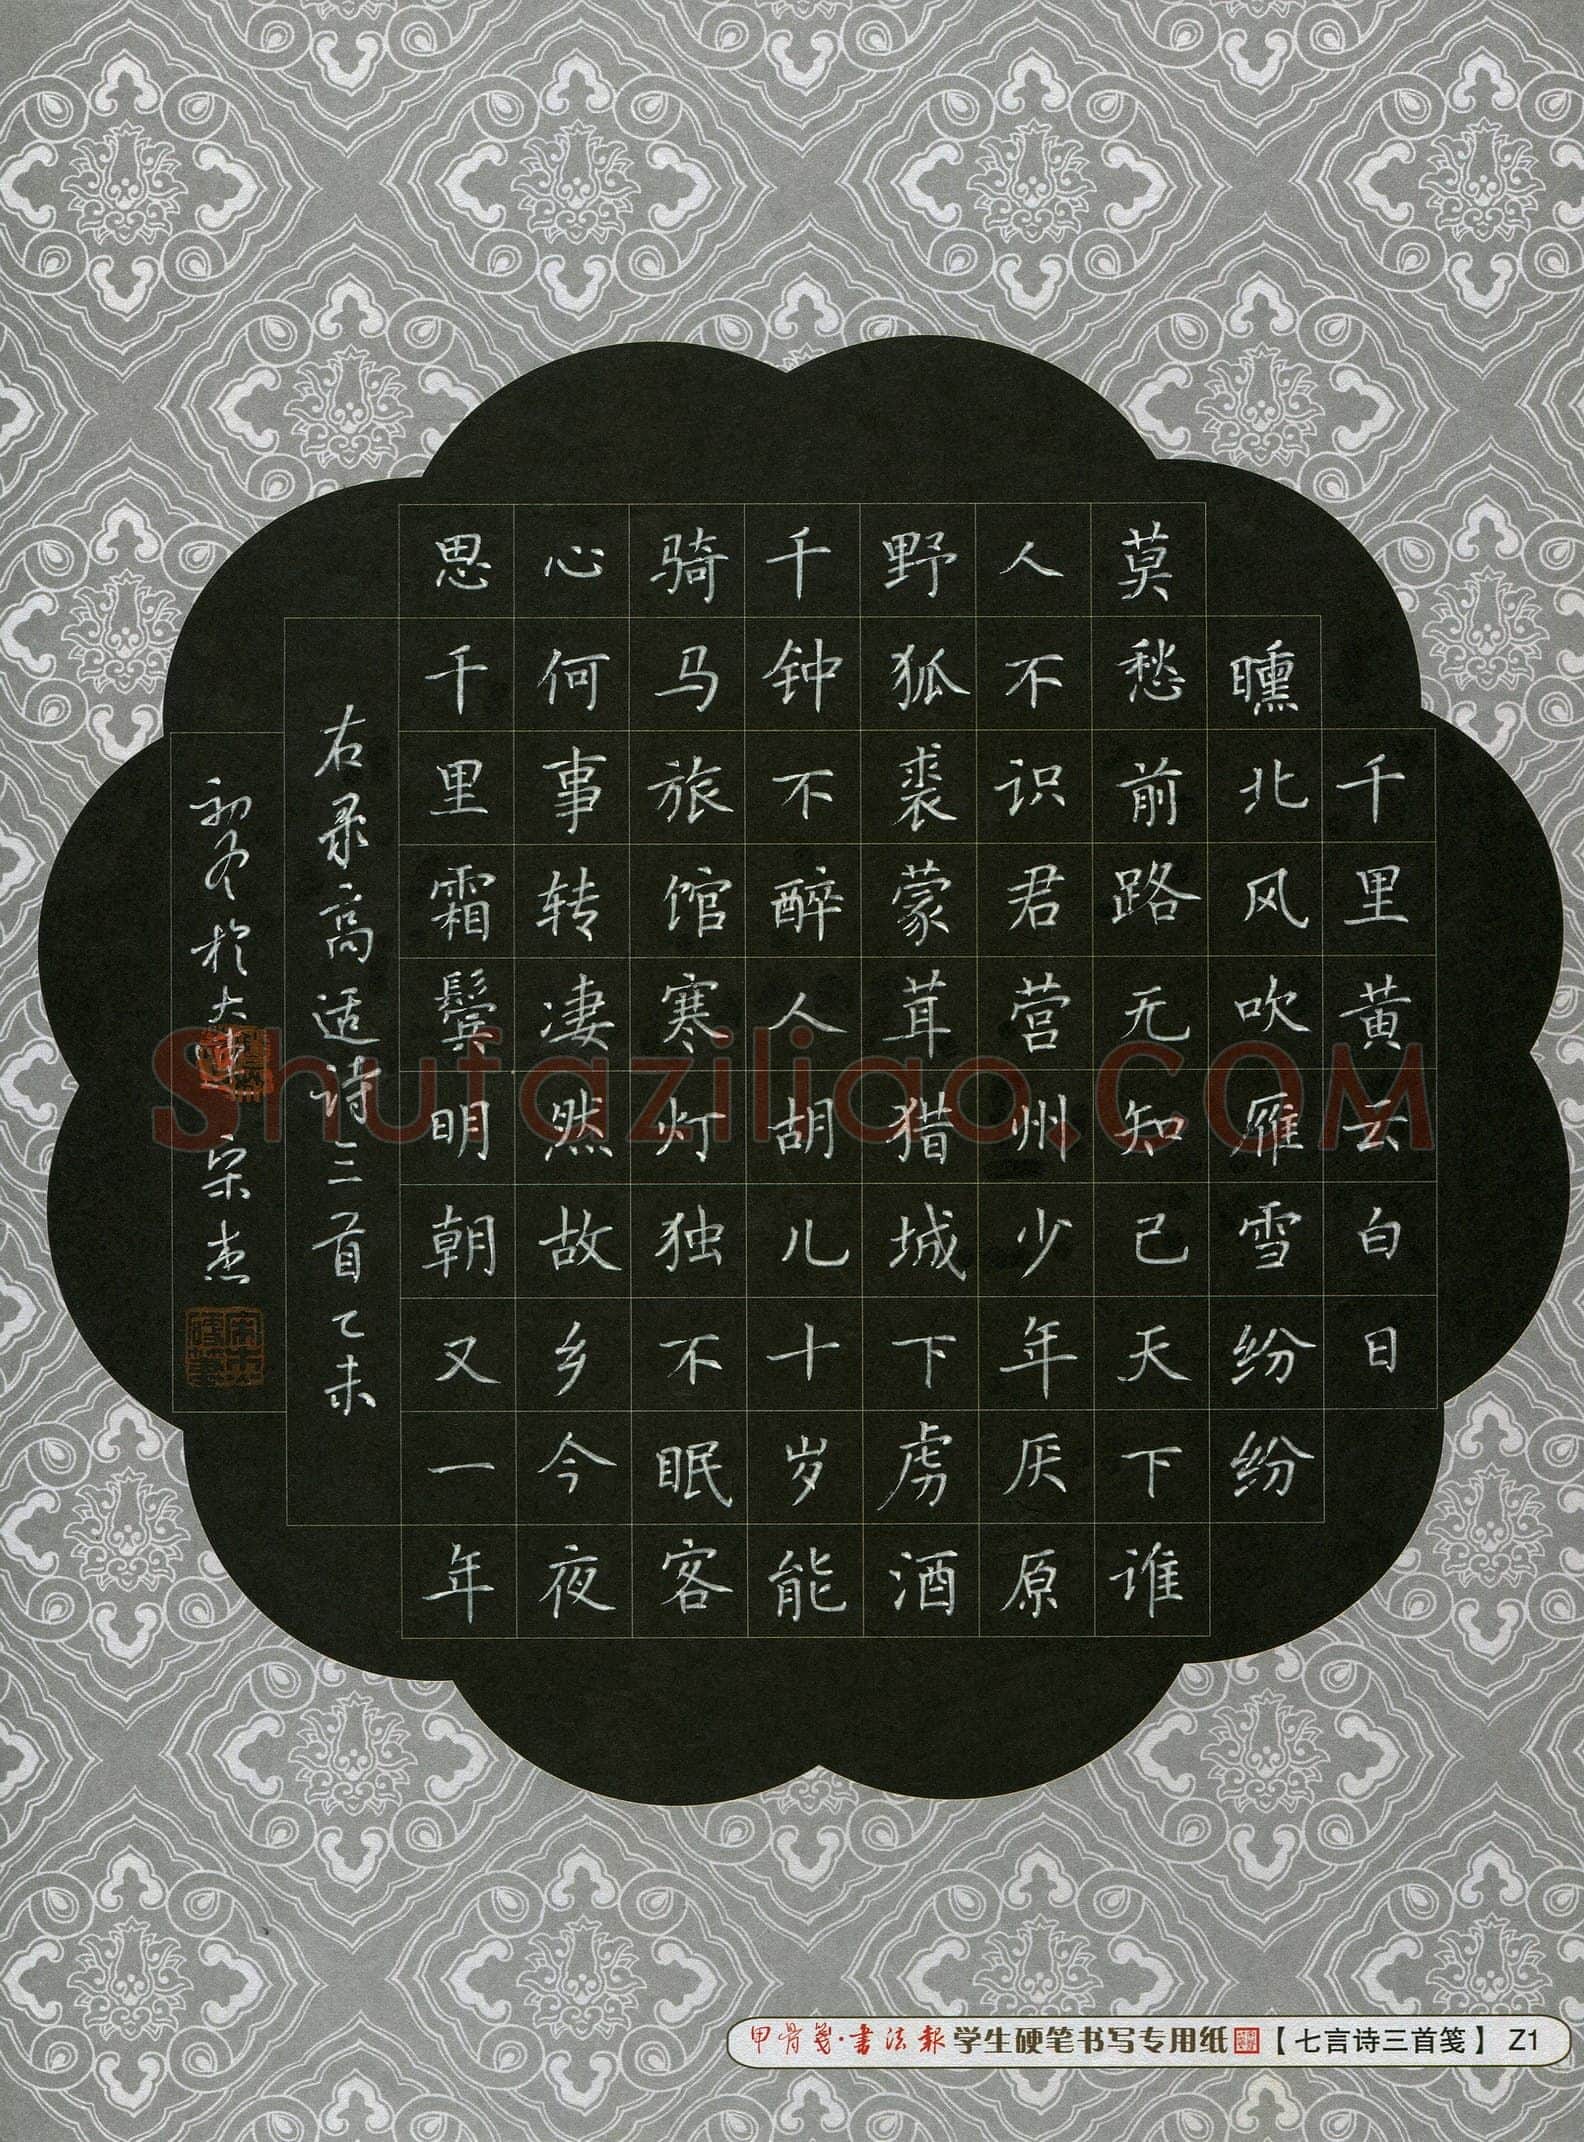 千里黄云白日
曛北风吹雁雪纷纷
莫愁前路无知己天下谁
人不识君营州少年厌原
野狐裘蒙茸猎城下虏酒
千钟不醉人胡儿十岁能
骑马旅馆寒灯独不眠客
心何事转凄然故乡今夜
思千里霜鬓明朝又一年
右录高适诗三首乙未
初冬於大连宋杰
Shufaziliao.COM
甲骨笺·书法报 学生硬笔书写专用纸【七言诗三首笺】 Z1